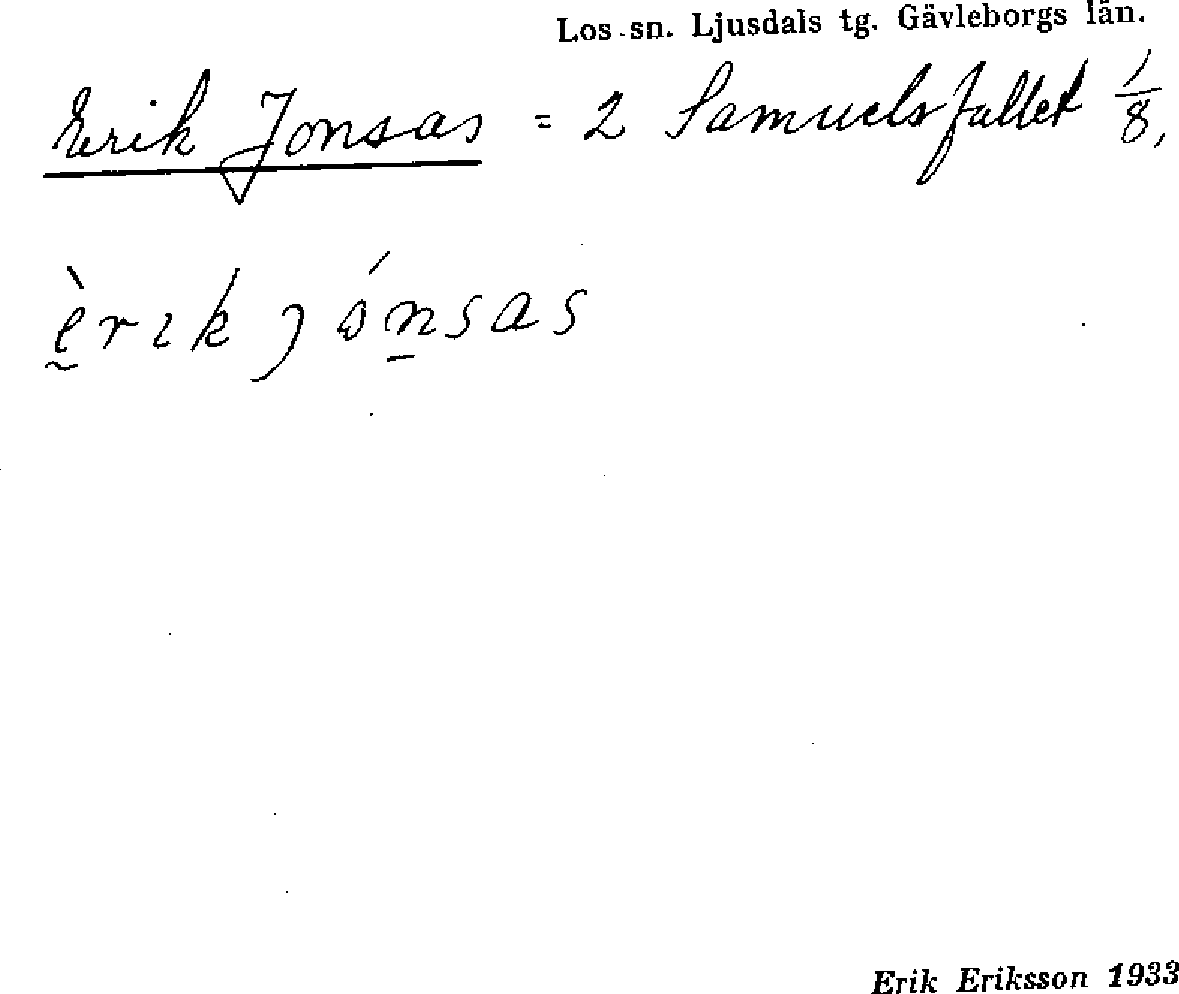 Los sn. Ljusdals tg. Gävleborgs län.
Erik Jonsas = 2 Samuelsfallet 1/8,
èrik jónsas
Erik Eriksson 1933